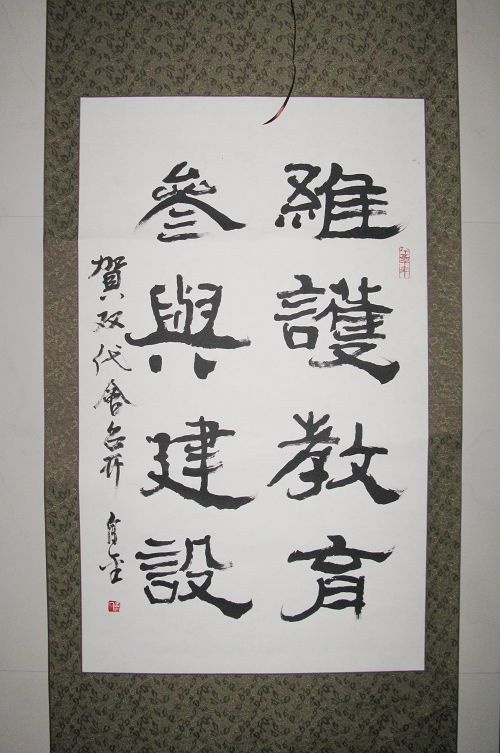 維護教育
參與建設
賀双代會召開